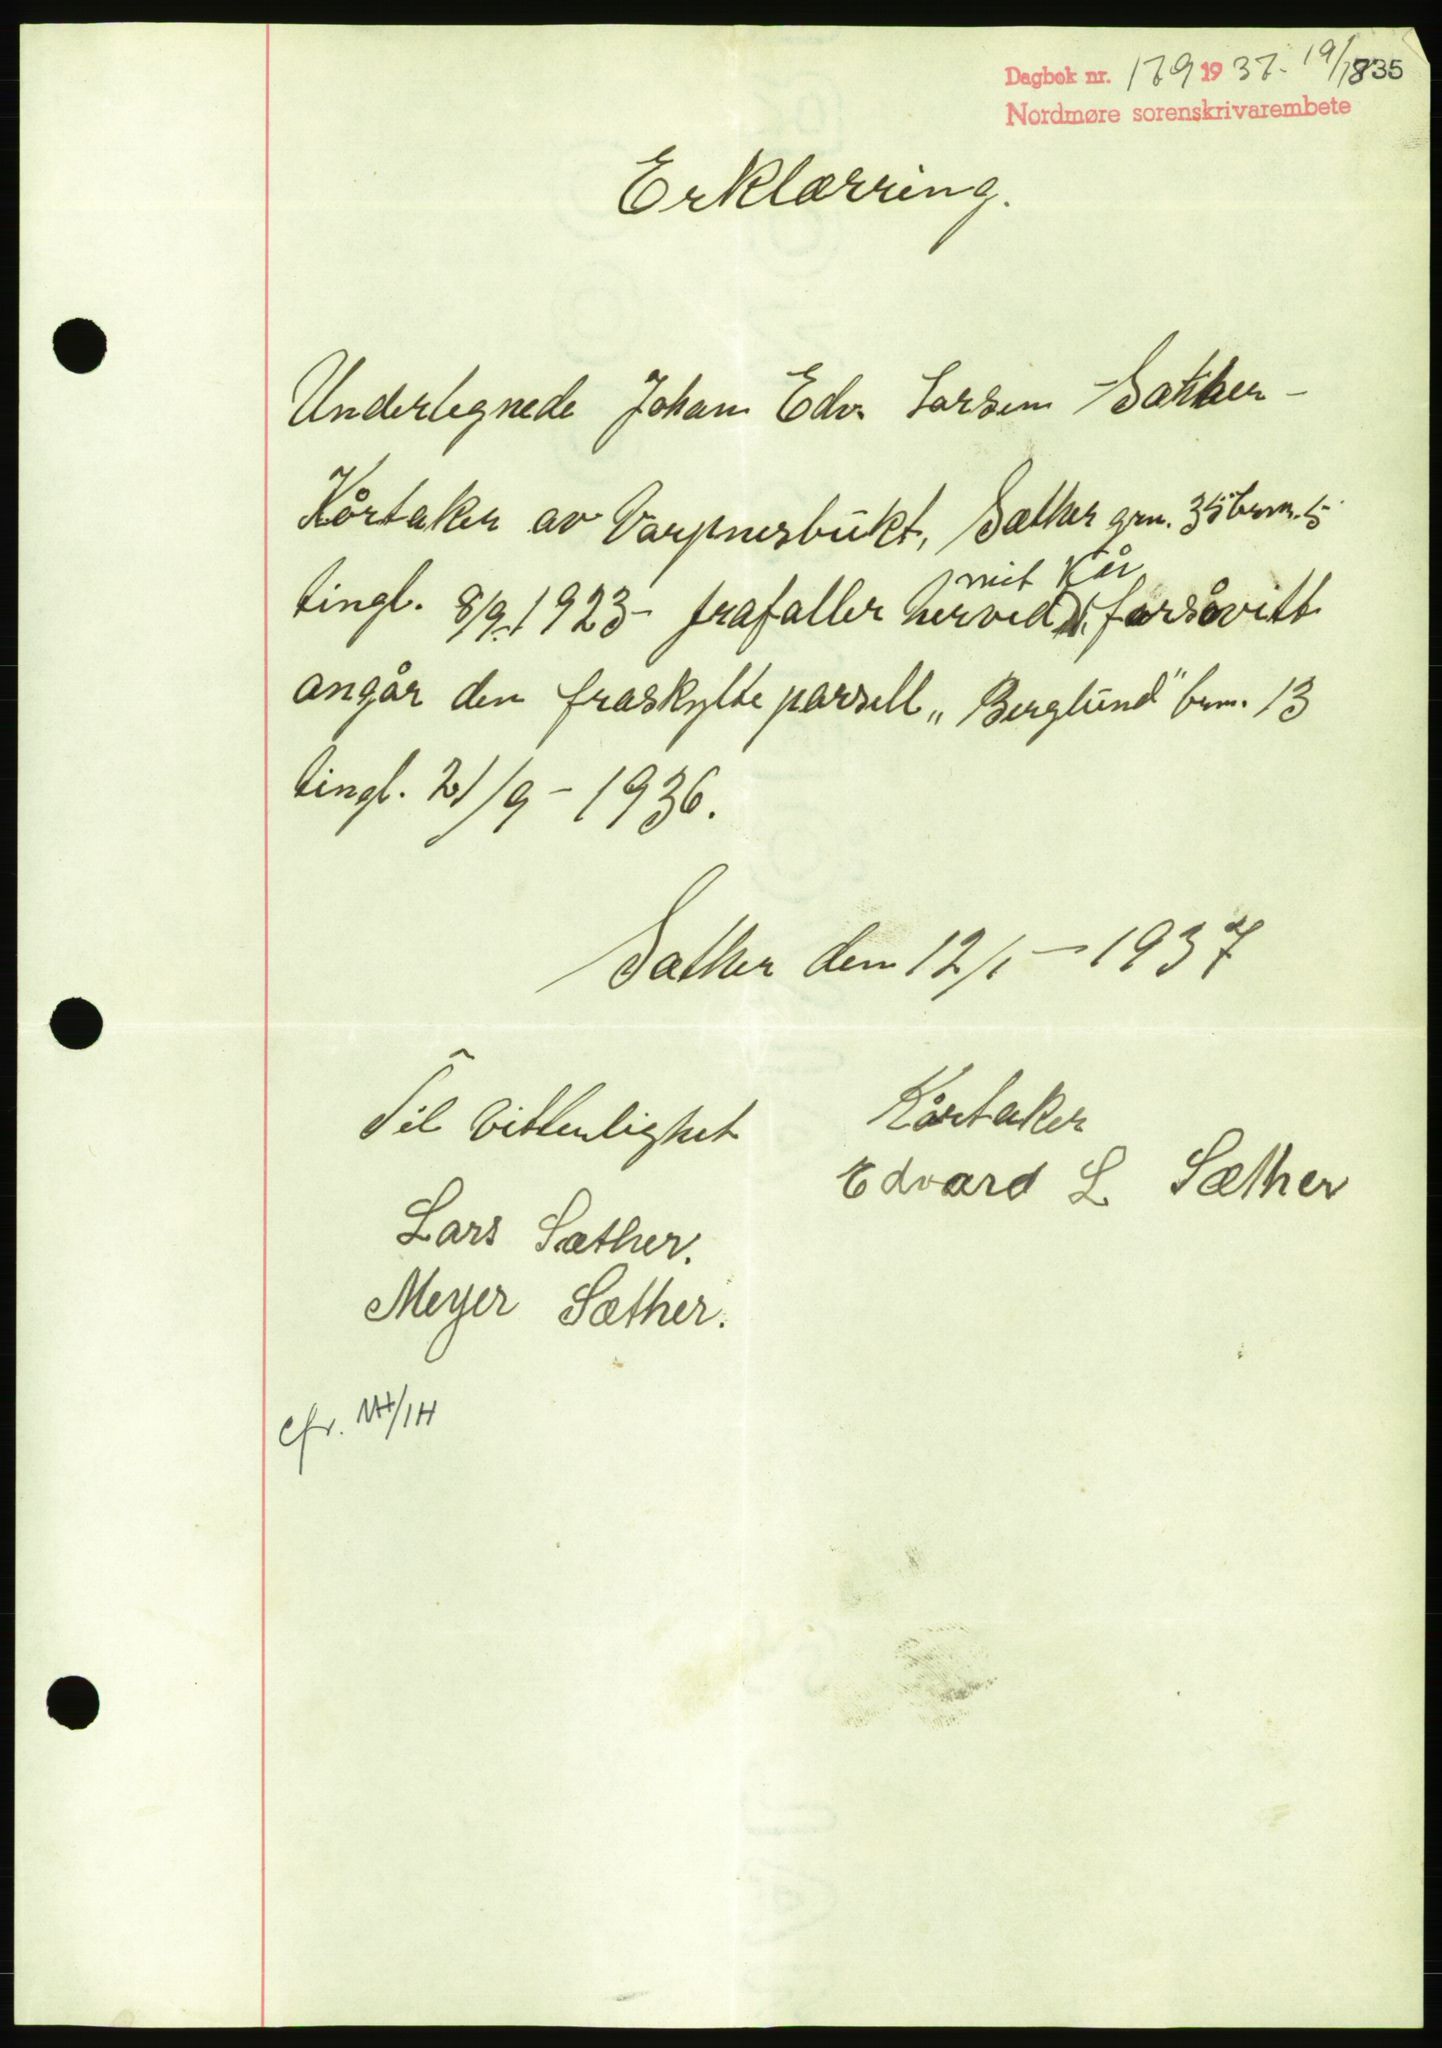 Dagbok nr. 179 1937. 19/1 835
Nordmøre sorenskrivarembete
Erklærring.
Undertegnede Johan Edv. Larsen Sæther -
Kårtaker av Varpnesbukt, Sæther grn. 35 brn. 5
tingl. 8/9. 1923 - frafaller herved mit Kår forsåvitt
angår den fraskylte parsell „Berglund" brn. 13
tingl. 21/9 - 1936.
Sæther den 12/1 - 1937
Til Vitterlighet
Kårtaker
Edvard L Sæther
Lars Sæther.
Meyer Sæther.
cfr. NH/IH